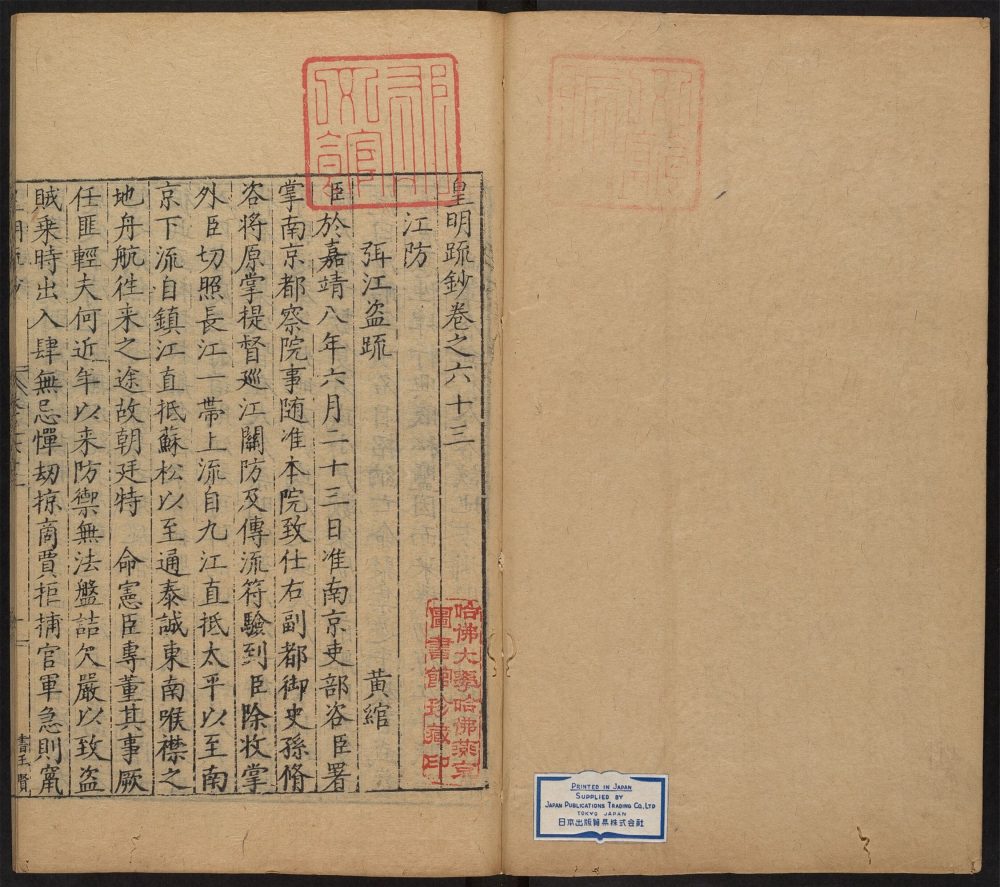 皇明疏鈔卷之六十三
江防
弭江盗疏 黄綰
臣於嘉靖八年六月二十三日准南京吏部咨臣署
掌南京都察院事随准本院致仕右副都御史孫脩
咨将原掌提督廵江關防及傳流符驗到臣除收掌
外臣切照長江一帯上流自九江直抵太平以至南
京下流自鎮江直抵蘇松以至通泰誠東南喉襟之
地舟航徃来之途故朝廷特 命憲臣專董其事厥
任匪輕夫何近年以来防禦無法盤詰欠嚴以致盗
賊乗時出入肆無忌憚刼掠商賈拒捕官軍急則竄
書王賢
哈佛大學哈佛燕京
圖書館珍藏印
PRINTED IN JAPAN
SUPPLIED BY
JAPAN PUBLICATIONS TRADING CO., LTD
TOKYO JAPAN
日本出版貿易株式会社